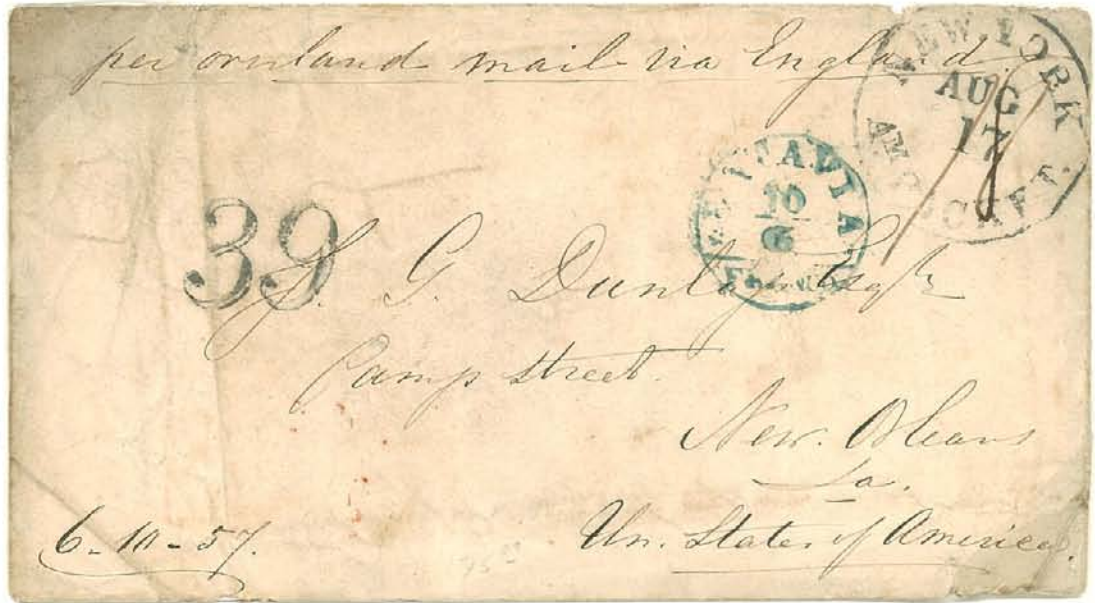 per overland mail via England
NEW YORK
AUG
17
AM. PKT.
BATAVIA
10
6
FRANCO
39
S. G. Dunlap Esqr
Camp Street.
New. Orleans
La.
Un. States of America.
6-10-57.